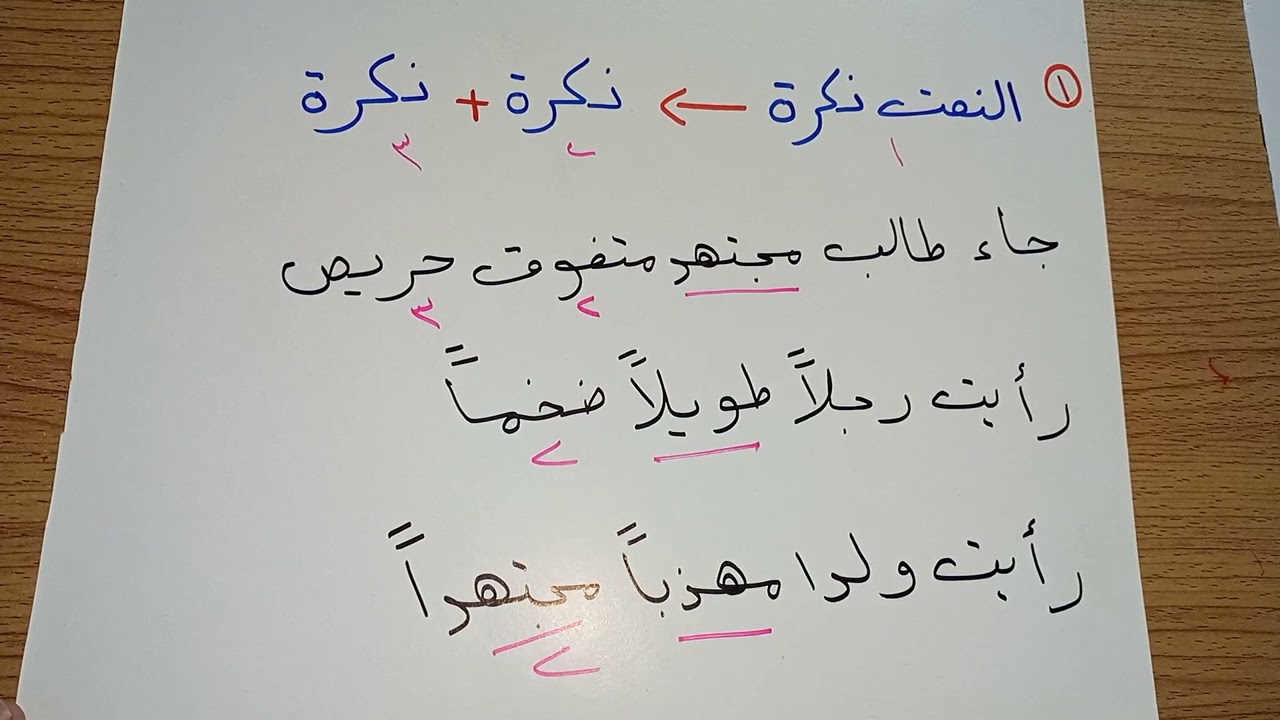 ١ النعت نكرة ← نكرة + نكرة
١ ٢ ٣
جاء طالب مجتهد متفوق حريص
٢ ٣
رأيت رجلاً طويلاً ضخماً
٢
رأيت ولدا مهذباً مجتهداً
٢